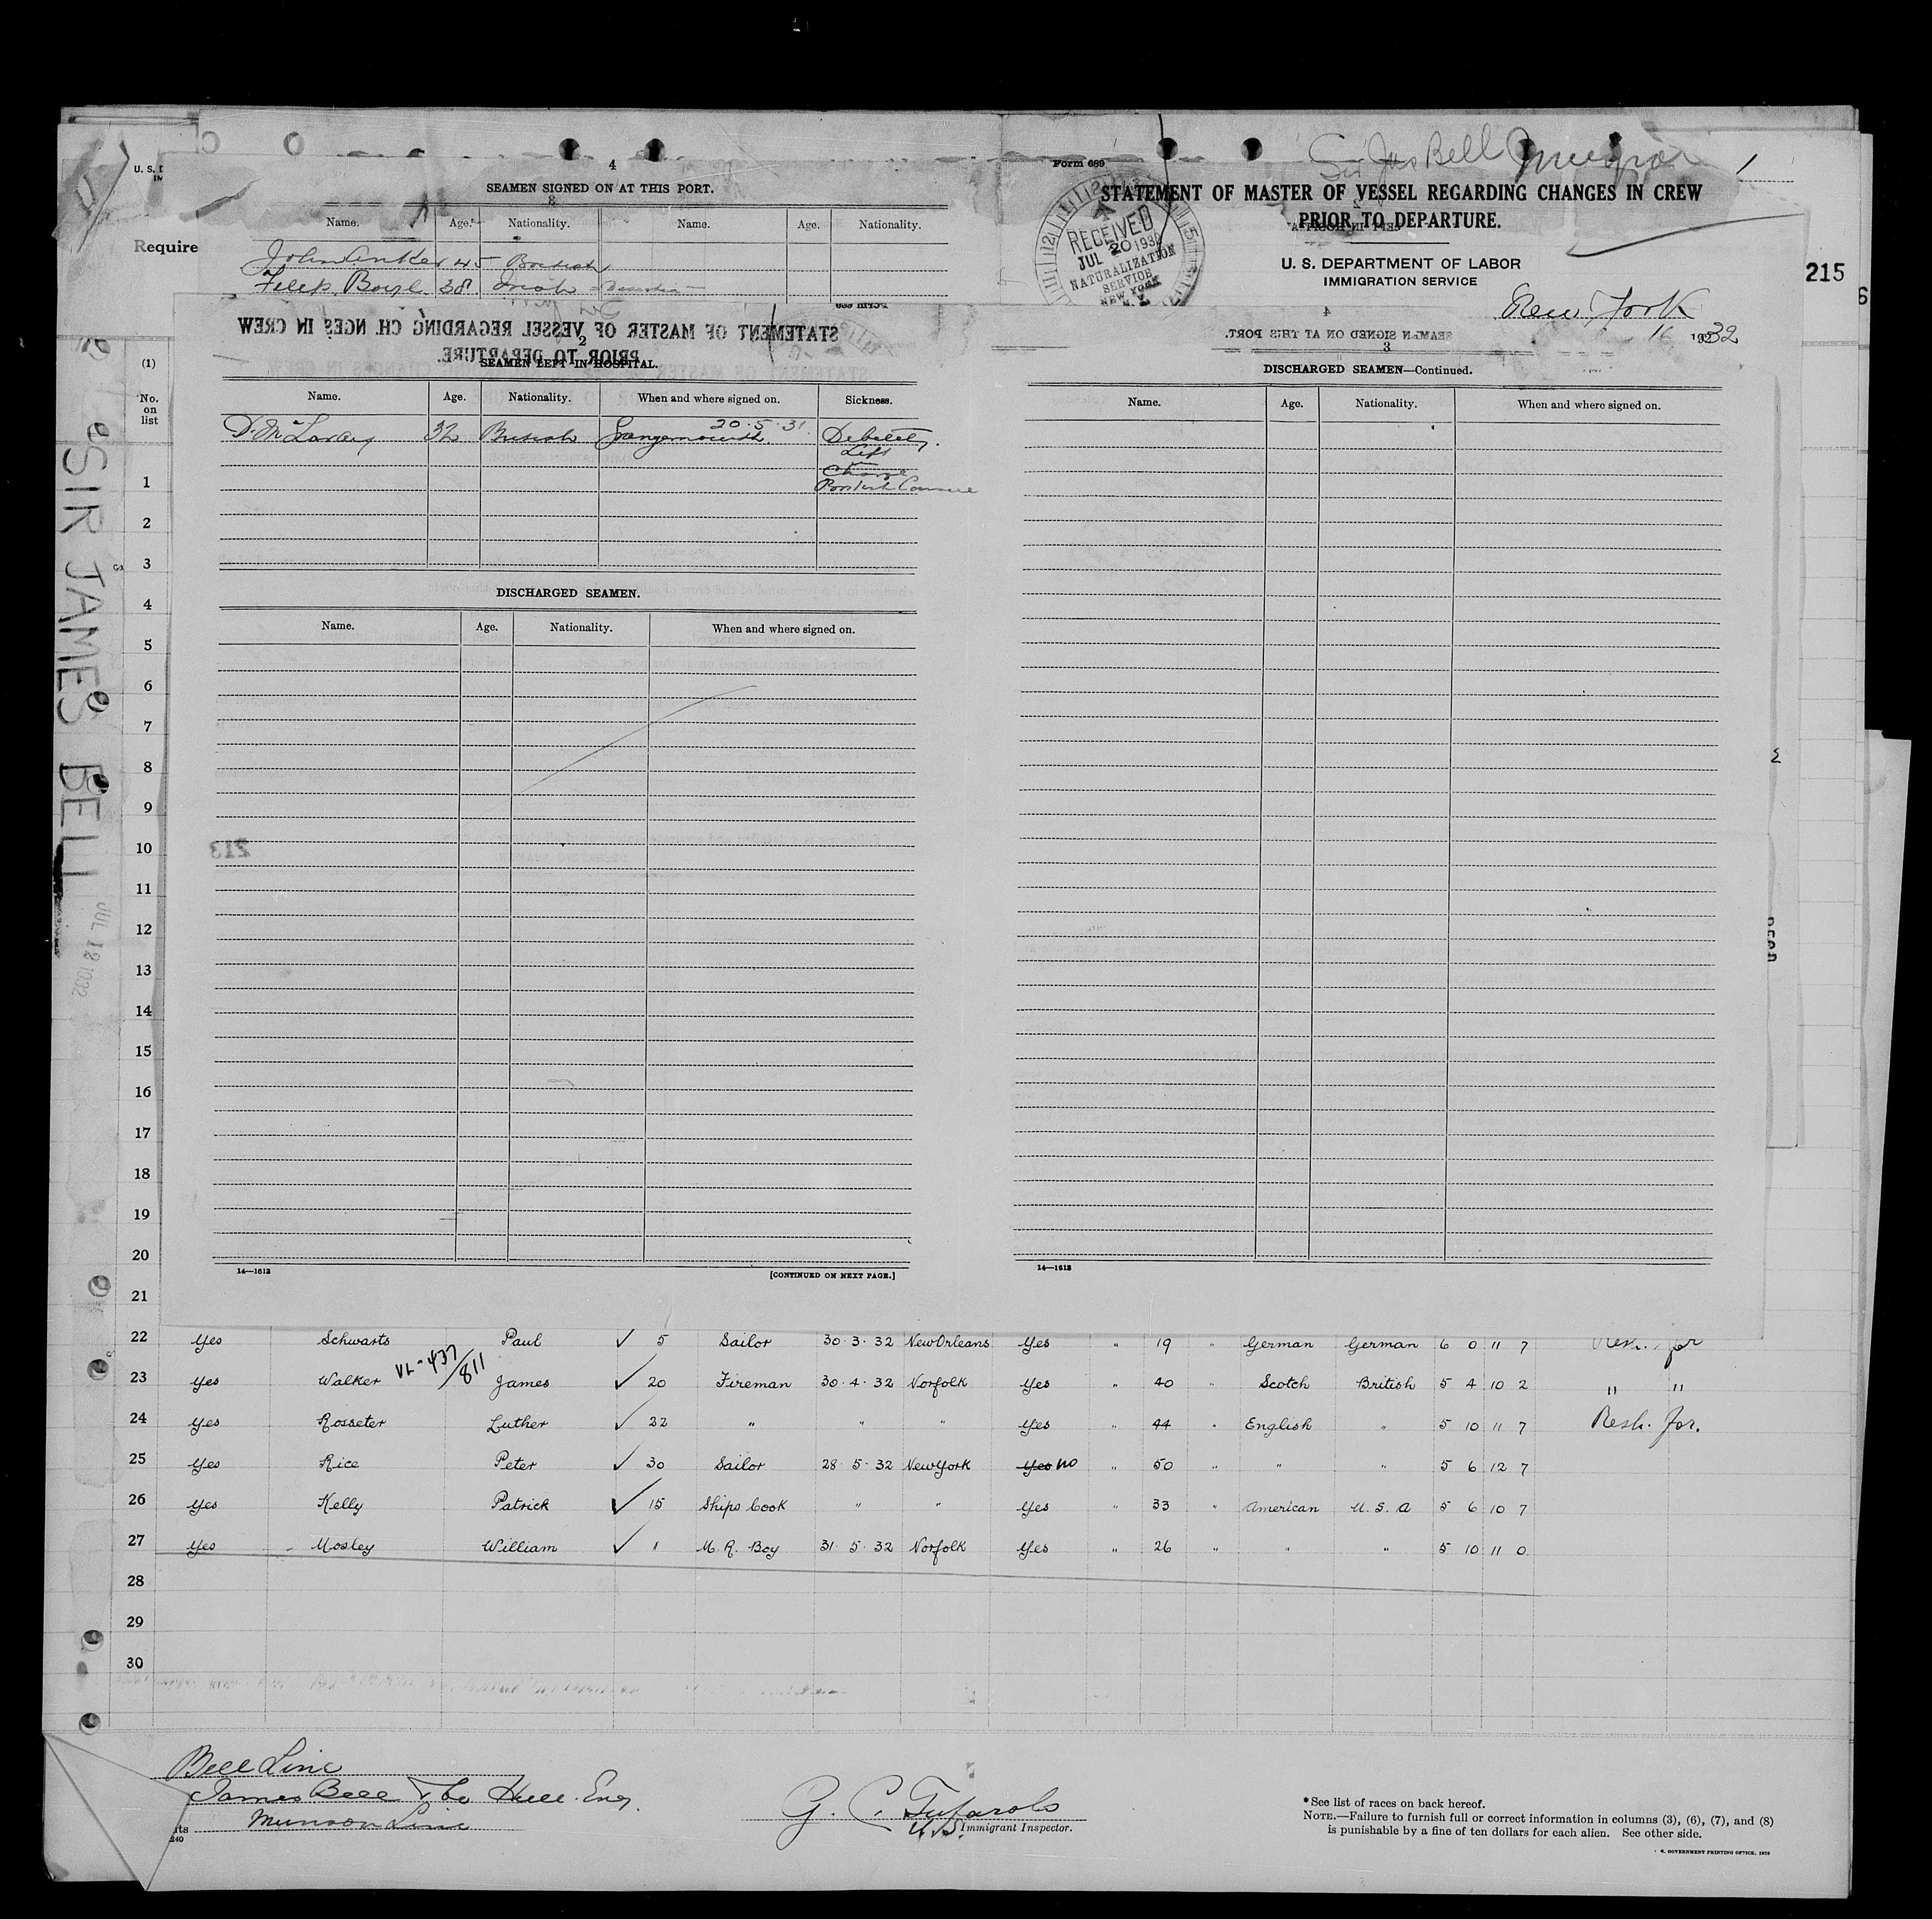 U. S. D
Require
215
4
SEAMEN SIGNED ON AT THIS PORT.
Name. Age. Nationality. Name. Age. Nationality.
John 45 British
Boyle 38 Irish
Form 689
Sir Jas Bell
STATEMENT OF MASTER OF VESSEL REGARDING CHANGES IN CREW
PRIOR TO DEPARTURE.
U. S. DEPARTMENT OF LABOR
IMMIGRATION SERVICE
RECEIVED
JUL 20 193
NATURALIZATION
SERVICE
NEW YORK
N. Y.
New York
16 1932
STATEMENT OF MASTER OF VESSEL REGARDING CH NGES IN CREW
PRIOR TO DEPARTURE.
2
SEAMEN LEFT IN HOSPITAL.
Name. Age. Nationality. When and where signed on. Sickness.
20.5.31
32 British Grangemouth Debility.
Left
in
Charge
British
DISCHARGED SEAMEN.
Name. Age. Nationality. When and where signed on.
213
14—1613 [CONTINUED ON NEXT PAGE.]
4
SEAMEN SIGNED ON AT THIS PORT.
3
DISCHARGED SEAMEN—Continued.
Name. Age. Nationality. When and where signed on.
14—1613
SIR JAMES BELL
JUL 12 1932
(1)
No.
on
list
1
2
3
4
5
6
7
8
9
10
11
12
13
14
15
16
17
18
19
20
21
22 Yes Schwarts Paul ✓ 5 Sailor 30·3·32 New Orleans Yes " 19 " German German 6 0 11 7
23 Yes Walker VL-437/811 James ✓ 20 Fireman 30·4·32 Norfolk Yes " 40 Scotch British 5 4 10 2 " "
24 Yes Rosseter Luther ✓ 22 " " " Yes " 44 " English " 5 10 11 7 Resh. for.
25 Yes Rice Peter ✓ 30 Sailor 28·5·32 New York Yes no " 50 " " " 5 6 12 7
26 Yes Kelly Patrick ✓ 15 Ships Cook " " Yes " 33 " American U.S.A 5 6 10 7
27 Yes Mosley William ✓ 1 M.R. Boy 31·5·32 Norfolk Yes " 26 " " " 5 10 11 0
28
29
30
Bell Line
James Bell & Co Hull Eng.
Munson Line
240
G. C. Tufarolo
U.S. Immigrant Inspector.
*See list of races on back hereof.
NOTE.—Failure to furnish full or correct information in columns (3), (6), (7), and (8)
is punishable by a fine of ten dollars for each alien. See other side.
GOVERNMENT PRINTING OFFICE. 1929